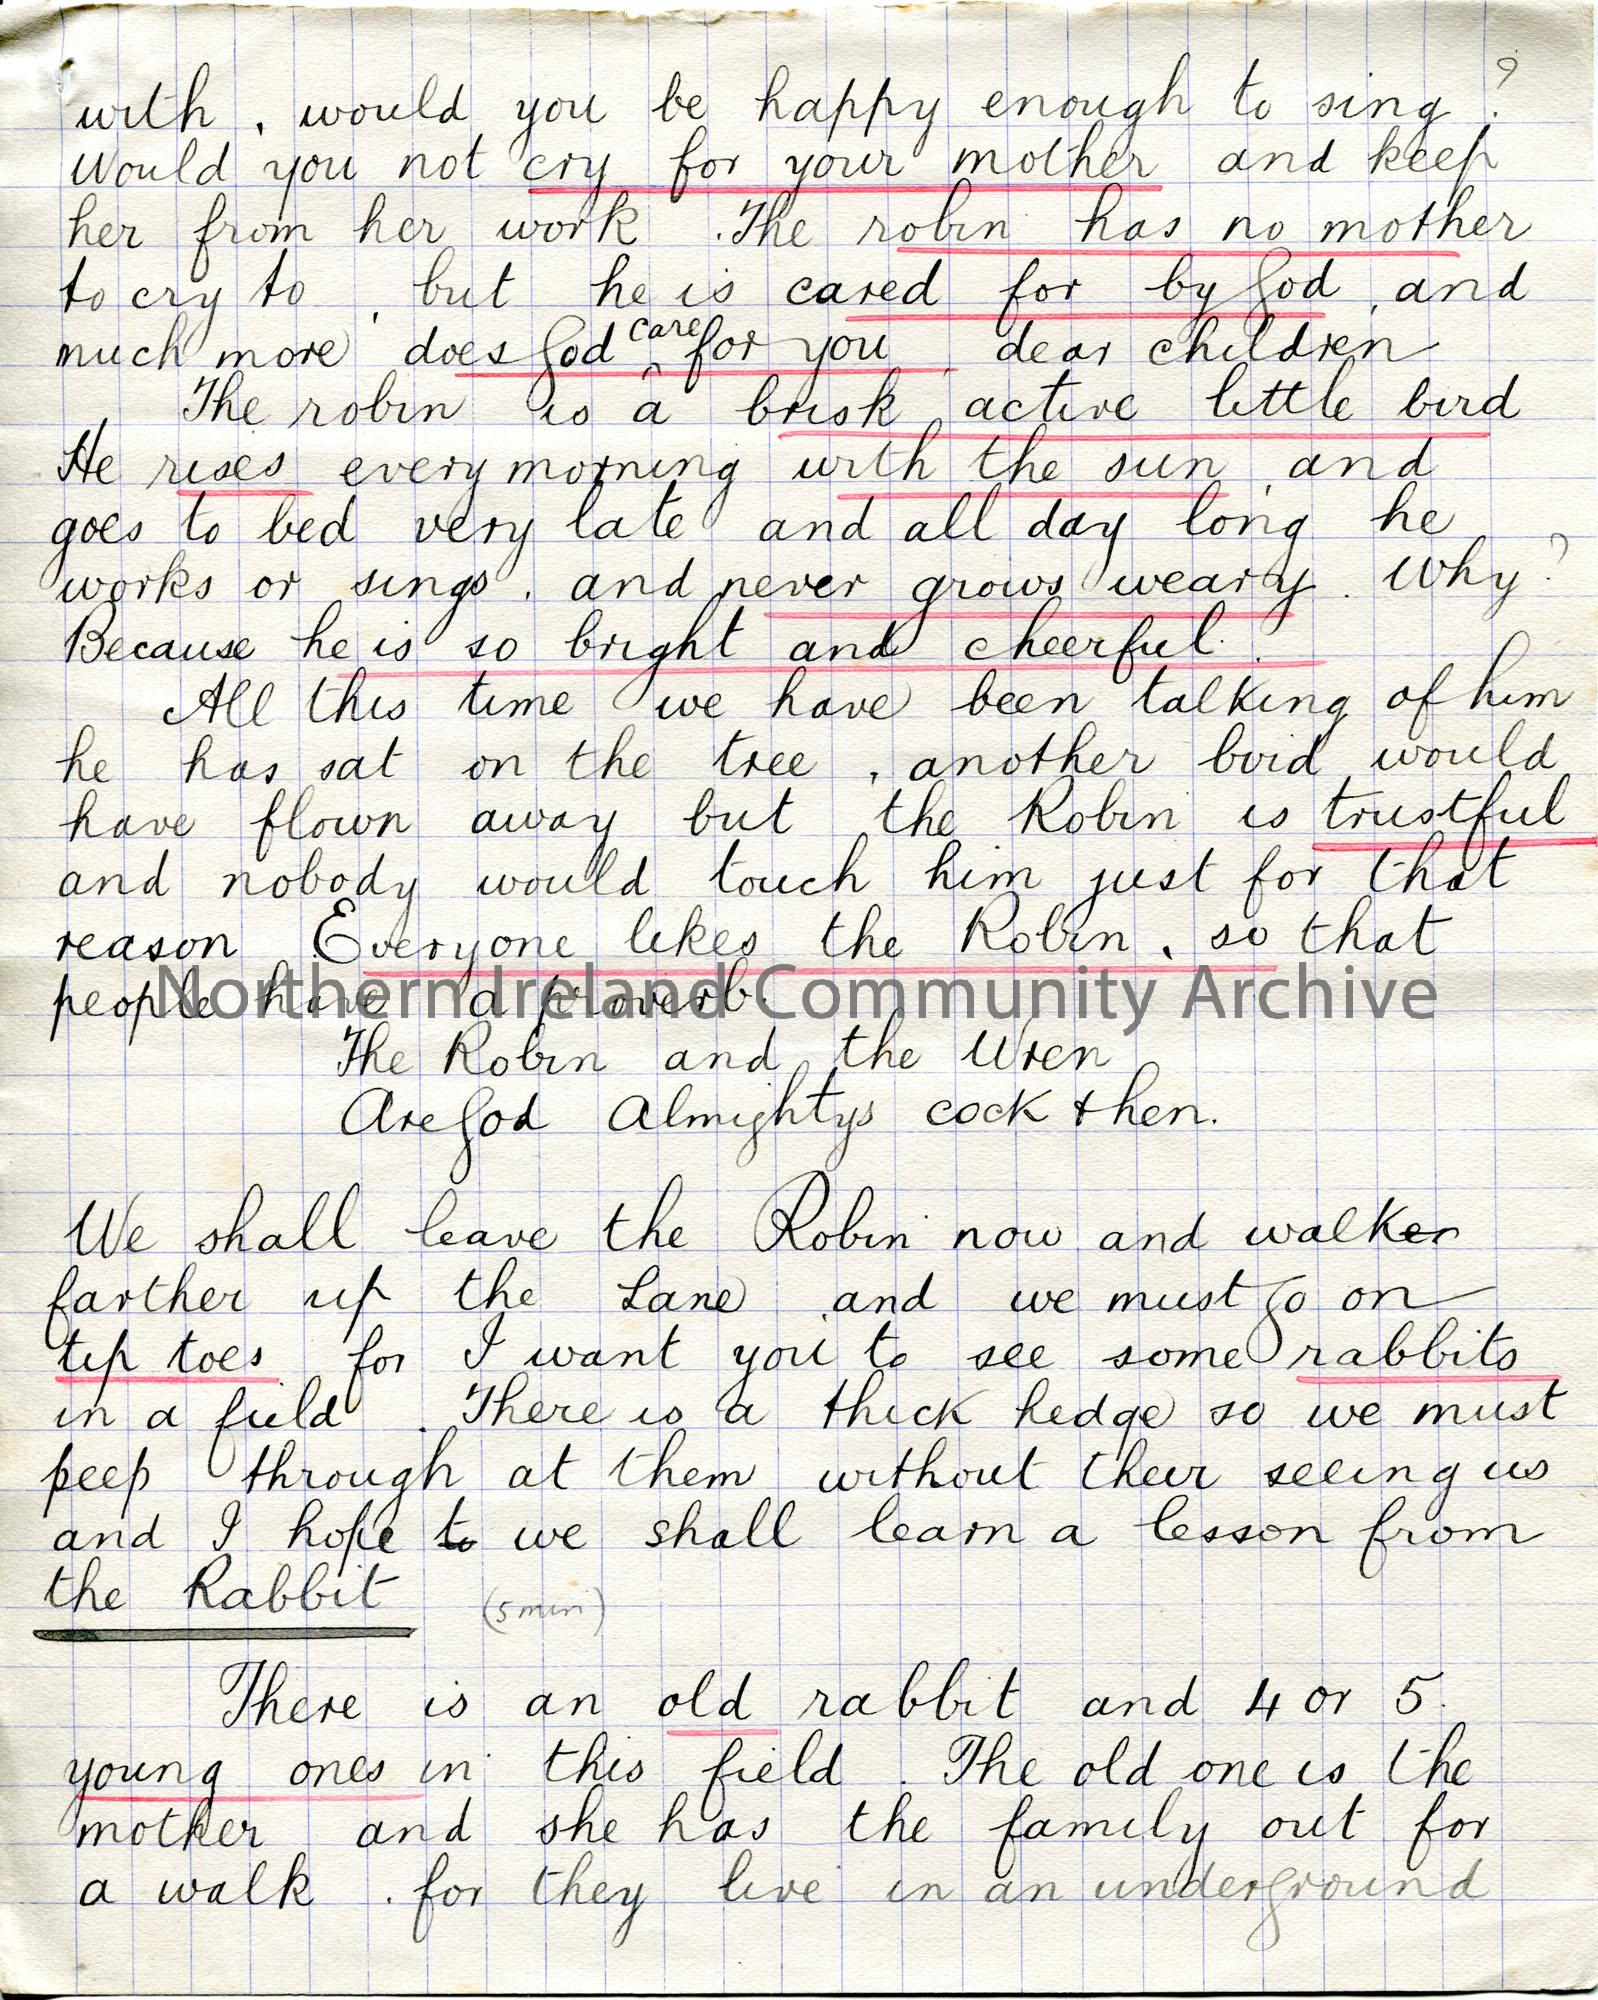 with, would you be happy enough to sing?
Would you not cry for your mother and keep
her from her work. The robin has no mother
to cry to, but he is cared for by God, and
much more does God care for you, dear children
The robin is a brisk active little bird
He rises every morning with the sun, and
goes to bed very late and all day long he
works or sings, and never grows weary. Why?
Because he is so bright and cheerful.
All this time we have been talking of him
he has sat on the tree, another bird would
have flown away but the Robin is trustful
and nobody would touch him just for that
reason. Everyone likes the Robin, so that
people have a proverb.
Northern Ireland Community Archive
The Robin and the Wren
Are God Almightys cock & hen.
We shall leave the Robin now and walker
farther up the Lane and we must go on
tip toes for I want you to see some rabbits
in a field. There is a thick hedge so we must
peep through at them without their seeing us
and I hope to we shall learn a lesson from
the Rabbit (5 min)
There is an old rabbit and 4 or 5
young ones in this field. The old one is the
mother and she has the family out for
a walk. for they live in an underground